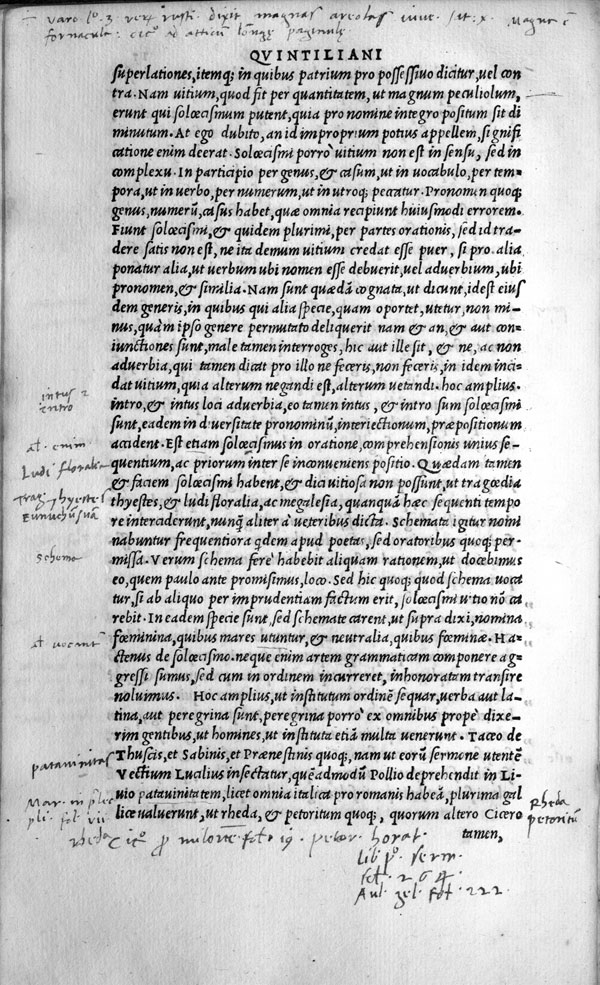 Varo lo. 3 rerum rusti. dixit magnas areolas
fornacula: cic. ad atticum
QVINTILIANI
superlationes, itemq; in quibus patrium pro possessiuo dicitur, uel con
tra. Nam uitium, quod fit per quantitatem, ut magnum peculiolum,
erunt qui solœcismum putent, quia pro nomine integro positum sit di
minutum. At ego dubito, an id improprium potius appellem, signifi
catione enim deerat. Solœcismi porrò uitium non est in sensu, sed in
complexu. In participio per genus, & casum, ut in uocabulo, per tem-
pora, ut in uerbo, per numerum, ut in utroq; peccatur. Pronomen quoq;
genus, numerũ, casus habet, quæ omnia recipiunt huiusmodi errorem.
Fiunt solœcismi, & quidem plurimi, per partes orationis, sed id tra-
dere satis non est, ne ita demum uitium credat esse puer, si pro alia
ponatur alia, ut uerbum ubi nomen esse debuerit, uel aduerbium, ubi
pronomen, & similia. Nam sunt quædã cognata, ut dicunt, idest eius
dem generis, in quibus qui alia specie, quam oportet, utetur, non mi-
nus, quàm ipso genere permutato deliquerit nam & an, & aut con-
iunctiones sunt, male tamen interroges, hic aut ille sit, & ne, ac non
aduerbia, qui tamen dicat pro illo ne feceris, non feceris, in idem inci-
dat uitium, quia alterum negandi est, alterum uetandi. hoc amplius.
intro, & intus loci aduerbia, eo tamen intus, & intro sum solœcismi
sunt, eadem in diuersitate pronominũ, interiectionum, præpositionum
accident. Est etiam solœcismus in oratione, comprehensionis unius se-
quentium, ac priorum inter se inconueniens positio. Quædam tamen
& faciem solœcismi habent, & dici uitiosa non possunt, ut tragœdia
thyestes, & ludi floralia, ac megalesia, quanquã hæc sequenti tempo
re interciderunt, nunq̃ aliter à ueteribus dicta. Schemata igitur nomi
nabuntur frequentiora q̃dem apud poetas, sed oratoribus quoq; per-
missa. Verum schema ferè habebit aliquam rationem, ut docebimus
eo, quem paulo ante promisimus, loco. Sed hic quoq; quod schema uoca
tur, si ab aliquo per imprudentiam factum erit, solœcismi uitio nõ ca
rebit. In eadem specie sunt, sed schemate carent, ut supra dixi, nomina
fœminina, quibus mares utuntur, & neutralia, quibus fœminæ. Ha-
ctenus de solœcismo. neque enim artem grammaticam componere ag-
gressi sumus, sed cum in ordinem incurreret, inhonoratam transire
noluimus. Hoc amplius, ut institutum ordinẽ sequar, uerba aut la-
tina, aut peregrina sunt, peregrina porrò ex omnibus propè dixe-
rim gentibus, ut homines, ut instituta etiã multa uenerunt. Taceo de
Thuscis, et Sabinis, et Prænestinis quoq;, nam ut eorũ sermone utentẽ
Vectium Lucilius insectatur, quẽadmodũ Pollio deprehendit in Li-
uio patauinitatem, licet omnia italica pro romanis habeã, plurima gal
lice ualuerunt, ut rheda, & petoritum quoq;, quorum altero Cicero
tamen,
intus
intro
al. enim
Ludi floralia
Trag. Thyestes
Schema
al. uocant
patauinitas
Rheda
petoritũ
rheda Cic. pro milone petor. horat.
lib. po. serm.
fol. 264.
Aul. gel. fol. 222.